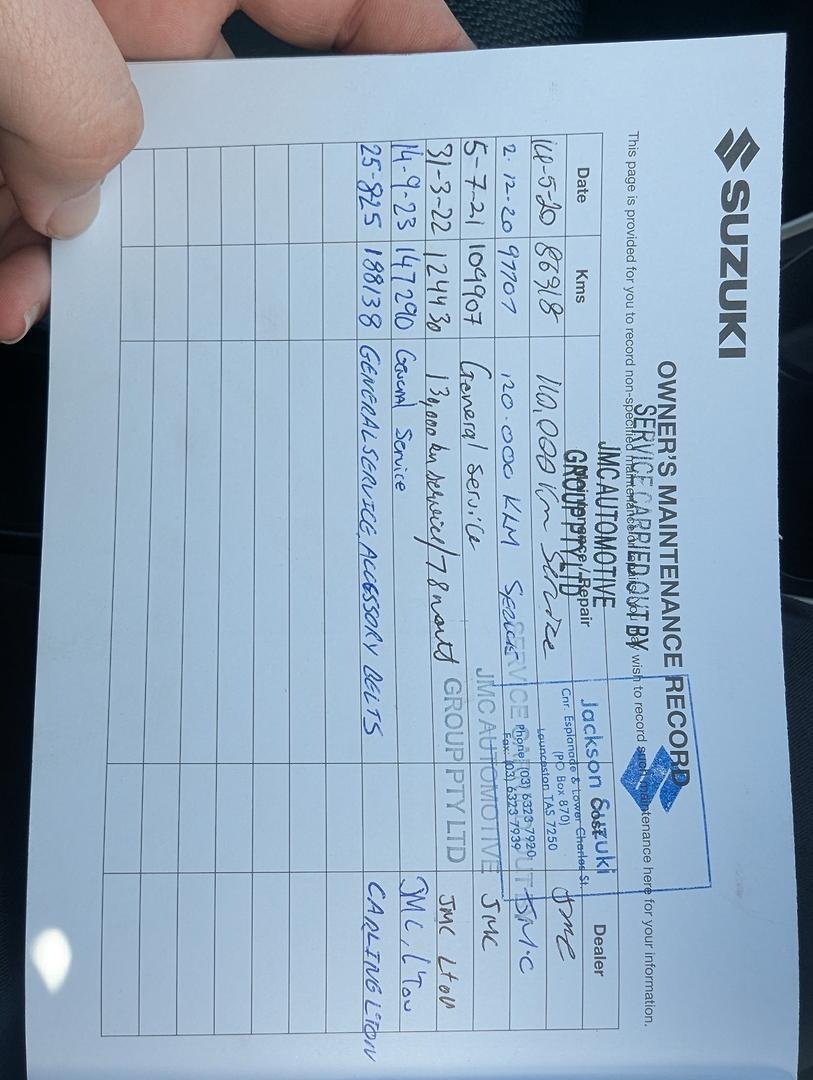 SUZUKI
OWNER'S MAINTENANCE RECORD
This page is provided for you to record non-specified maintenance or repairs you may wish to record such maintenance here for your information.
SERVICE CARRIED OUT BY
JMC AUTOMOTIVE
GROUP PTY LTD
Jackson Suzuki
Cnr. Esplanade & Lower Charles St.
(PO Box 870)
Launceston TAS 7250
Phone: (03) 6323 7920
Fax: (03) 6323 7939
Date Kms Maintenance / Repair Cost Dealer
14-5-20 86918 110,000 km Service JMC
2.12.20 97707 120.000 KLM Service JM.C
5-7-21 109907 General Service JMC
31-3-22 124430 130,000 km service / 78 mnts JMC Lton
14-9-23 147290 General Service JMC, LTon
25-825 188138 GENERAL SERVICE, ACCESSORY BELTS CARLING LTON
SERVICE CARRIED OUT BY
JMC AUTOMOTIVE
GROUP PTY LTD